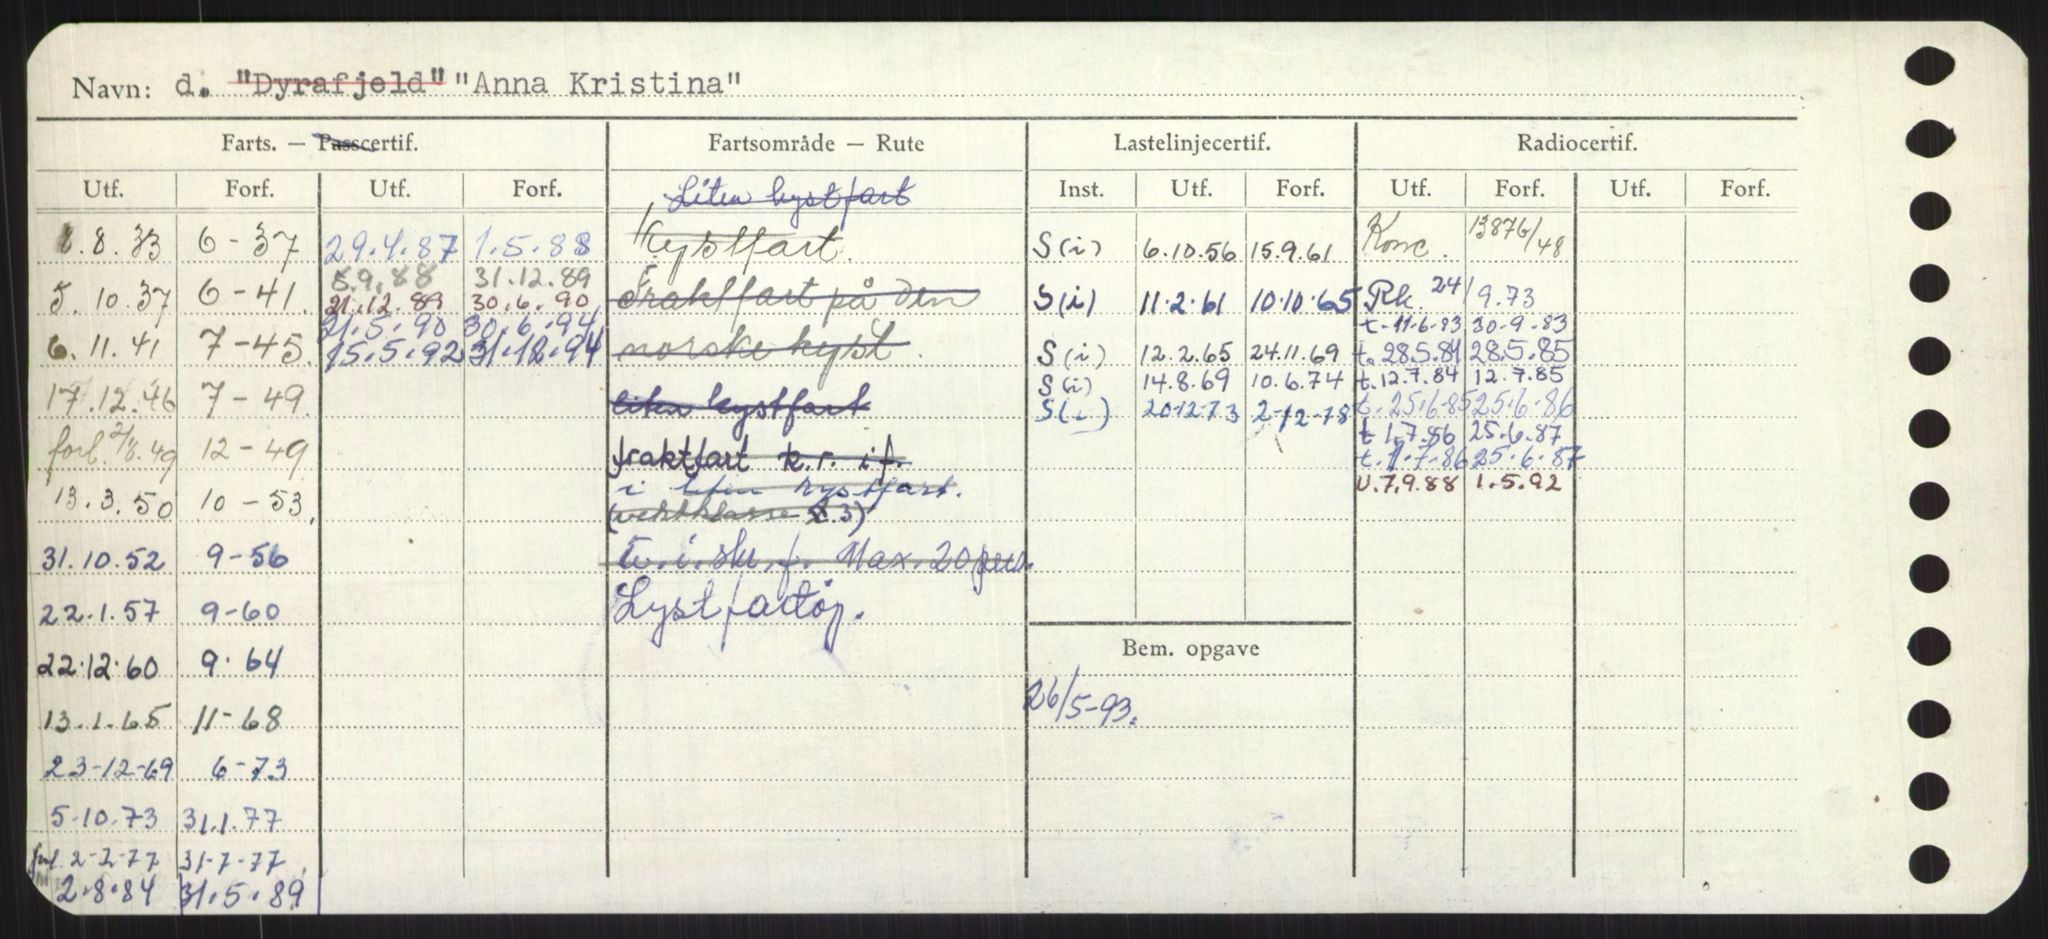 Navn: d. "Dyrafjeld" "Anna Kristina"
Farts. — Passcertif. Fartsområde — Rute Lastelinjecertif. Radiocertif.
Utf. Forf. Utf. Forf. Liten kystfart Inst. Utf. Forf. Utf. Forf. Utf. Forf.
8.8.33 6-37 29.4.87 1.5.88 Kystfart. S(i) 6.10.56 15.9.61 Konc. 13876/48
8.9.88 31.12.89
5.10.37 6-41 21.12.89 30.6.90 Fraktfart på den S(i) 11.2.61 10.10.65 Rk. 24/9.73
21.5.90 30.6.94 t.11.6.83 30.9.83
6.11.41 7-45 15.5.92 31.12.94 norske kyst. S(i) 12.2.65 24.11.69 t.28.5.84 28.5.85
S(i) 14.8.69 10.6.74 t.12.7.84 12.7.85
17.12.46 7-49 liten kystfart S(i) 20-12-73 2-12-78 t.25.6.85 25.6.86
t 1.7.86 25.6.87
forl. 2/8.49 12-49 fraktfart k.r. i f. t.11.7.86 25.6.87
13.3.50 10-53. i liten kystfart. U.7.9.88 1.5.92
(vektklasse 3)
31.10.52 9-56 Max. 20 pers.
22.1.57 9-60 Lystfartøy.
22.12.60 9.64 Bem. opgave
13.1.65 11-68 26/5-93.
23-12-69 6-73
5.10.73 31.1.77
forl 2-2-77 31-7-77
2.8.84 31.5.89